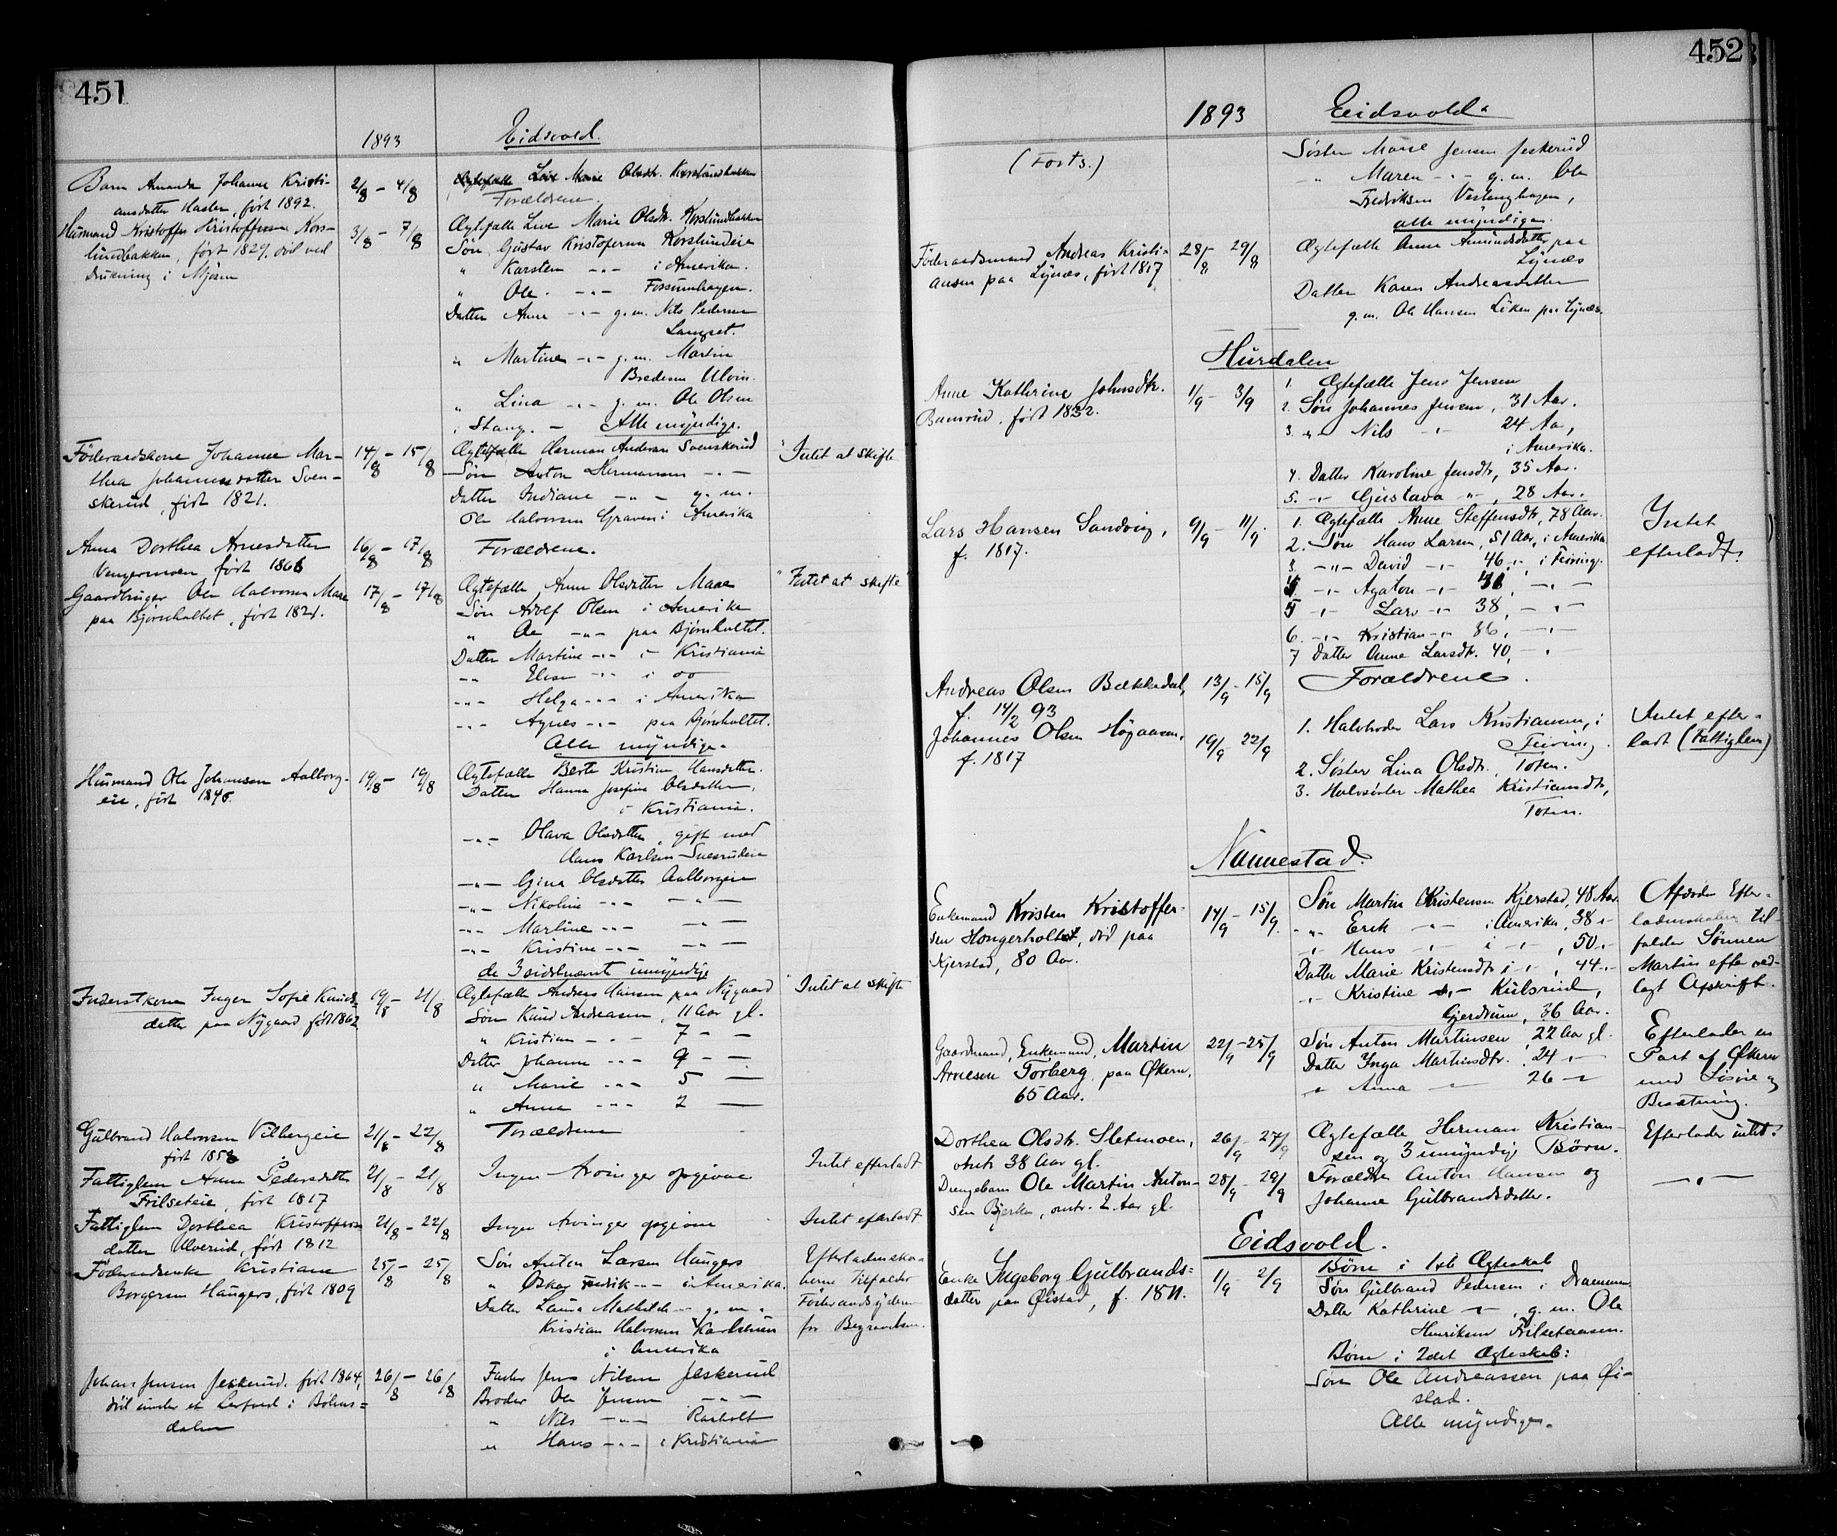 451
1893 Eidsvold.
Barn Amanda Johanne Kristi- 2/8 – 4/8 Ægtefælle Live Marie Olsdtr. Korslundbakken
ansdatter Hasler, født 1892. Forældrene.
Husmand Kristoffer Kristoffersen Kors- 3/8 – 7/8 Ægtefælle Live Marie Olsdtr. Korslundbakken
lundbakken, født 1829. død ved Søn Gustav Kristofersen Korslundeie
drukning i Mjøsen " Karsten -"- i Amerika.
" Ole -"- Fossumhagen.
Datter Anne -"- g. m. Nils Pedersen
Langset.
" Martine -"- g. m. Martin
Bredesen Ulvin.
" Lina -"- g. m. Ole Olsen
i Stang. – Alle myndige.
Föderaadskone Johanne Mar- 14/8 – 15/8 Ægtefælle Herman Andersen Svenskerud "Intet at skifte
thea Johannesdatter Sven- Søn Anton Hermansen -"-
skerud, født 1821. Datter Indiane -"- g. m.
Ole Halvorsen Graven i Amerika
Anna Dorthea Arnesdatter 16/8 – 17/8 Forældrene.
Vengermoen født 1866
Gaardbruger Ole Halvorsen Maae 17/8 – 17/8 Ægtefælle Anne Olsdatter Maae "Intet at skifte"
paa Bjørnholtet, født 1821. Søn Adolf Olsen i Amerika
" Ole -"- paa Bjørnholtet.
Datter Martine -"- i Kristiania
-"- Elise -"- i do
-"- Helga -"- i Amerika
-"- Agnes -"- paa Bjørnholtet.
Alle myndige.
Husmand Ole Johansen Aalborg- 19/8 – 19/8 Ægtefælle Berte Kristine Hansdatter.
eie, født 1846. Datter Hanna Josefine Olsdatter,
i Kristiania.
-"- Olava Olsdatter, gift med
Hans Karlsen
-"- Gina Olsdatter Aalborgeie
-"- Nikoline -"- -"-
-"- Martine -"- -"-
-"- Kristine -"- -"-
de 3 sidstnævnt umyndige
Inderstkone Inger Sofie Knuds- 19/8 – 21/8 Ægtefælle Andreas Hansen paa Nygaard "Intet at skifte
datter paa Nygaard født 1862 Søn Knud Andreasen, 11 Aar gl.
" Kristian -"- 7 -"-
Datter Johanne -"- 9 -"-
" Marie -"- 5 -
" Anna -"- 2 -
Gulbrand Halvorsen Vilbergeie 21/8 – 22/8 Forældrene
født 1858
Fattiglem Anne Pedersdatter 21/8 – 21/8 Ingen Arvinger opgivne Intet efterladt
Frilseteie, født 1817
Fattiglem Dorthea Kristoffers- 21/8 – 22/8 Ingen Arvinger opgivne Intet efterladt
datter Ulverud, født 1812
Föderaadsenke Kristiane 25/8 – 25/8 Søn Anton Larsen Haugers Efterladenska-
Borgersen Haugers, født 1809 " Oskar Fredrik -"- i Amerika. berne tilfalder
Datter Laura Mathilde -"- g. m. Föderaadsyderen
Kristian Halvorsen Karlsrum for Begravelsen.
i Amerika
Johan Jensen Jeskerud, født 1864, 26/8 – 26/8 Fader Jens Nilsen Jeskerud
död under et i Böhns- Broder Ole Jensen -"-
dalen " Nils -"- Raaholt
" Hans -"- i Kristiania

452
1893 Eidsvold.
(Forts.) Søster Marie Jensen Jeskerud
" Maren -"- g. m. Ole
Fredriksen Vestenghagen,
alle myndige.
Föderaadsmand Andreas Kristi- 28/8 – 29/8 Ægtefælle Anne Amundsdatter paa
ansen paa Lynæs, født 1817 Lynæs
Datter Karen Andreasdatter
g. m. Ole Hansen Löken paa Lynæs.
Hurdalen
Anne Kathrine Johnsdtr. 1/9 – 3/9 1. Ægtefælle Jens Jensen
Bamrud, født 1832. 2. Søn Johannes Jensen, 31 Aar.
3. -"- Nils -"- 24 Aar,
i Amerika.
4. Datter Karoline Jensdtr, 35 Aar.
5. -"- Gustava -"-, 28 Aar.
Lars Hansen Sandvig, 9/9 – 11/9 1. Ægtefælle Anne Steffensdtr, 78 Aar. Intet
f. 1817. 2. Søn Hans Larsen, 51 Aar, i Amerika efterladt.
3. -"- David -"- 46 -"- i Feiring.
4 -"- Agaton -"- -"-
5 -"- Lars -"- 38, -"-
6. -"- Kristian -"- 36, -"-
7 Datter Anne Larsdtr. 40, -"-
Andreas Olsen Bækkedal, 13/9 – 15/9 Forældrene.
f. 14/2 93
Johannes Olsen Høgaasen, 19/9 22/9 1. Halvbroder Lars Kristiansen, i Intet efter-
f. 1817 Feiring. ladt (Fattiglem)
2. Søster Lina Olsdtr, Toten.
3. Halvsøster Mathea Kristiansdtr,
Toten.
Nannestad.
Enkemand Kristen Kristoffer- 14/9 – 15/9 Søn Martin Kristensen Kjerstad, 48 Aar Afdødes Efter-
sen Hongerholtet, död paa -"- Erik -"- i Amerika, 38 -"- ladenskaber til-
Kjerstad, 80 Aar. -"- Hans -"- i -"-, 50 -"- falder Sønnen
Datter Marie Kristensdtr i -"-, 44 -"- Martin efter ved-
-"- Kristine -"- Kulsrud, lagt Afskrift.
Gjerdrum, 36 Aar.
Gaardmand, Enkemand, Martin 22/9 – 25/9 Søn Anton Martinsen 22 Aar gl. Efterlader en
Arnesen Torberg paa Økern, Datter Inga Martinsdtr. 24 -"- Part af Økern
65 Aar. " Anna -"- 26 -"- med Løsøre og
Besætning.
Dorthea Olsdtr. Sletmoen, 26/9 – 27/9 Ægtefælle Herman Kristian- Efterlader intet.
omtr 38 Aar gl. sen og 3 umyndig Børn.
Drengebarn Ole Martin Anton- 28/9 – 29/9 Forældre Anton Hansen og -"-
sen Bjerke, omtr. 2 Aar gl. Johanne Gulbrandsdatter.
Eidsvold.
Enke Ingeborg Gulbrands- 1/9 2/9 Børn i 1ste Ægteskab
datter paa Øistad, f. 1811. Søn Gulbrand Pedersen i Drammen
Datter Kathrine -"-, g. m. Ole
Henriksen Frilsetaasen.
Børn i 2det Ægteskab:
Søn Ole Andreassen paa Øi-
stad.
Alle myndige.